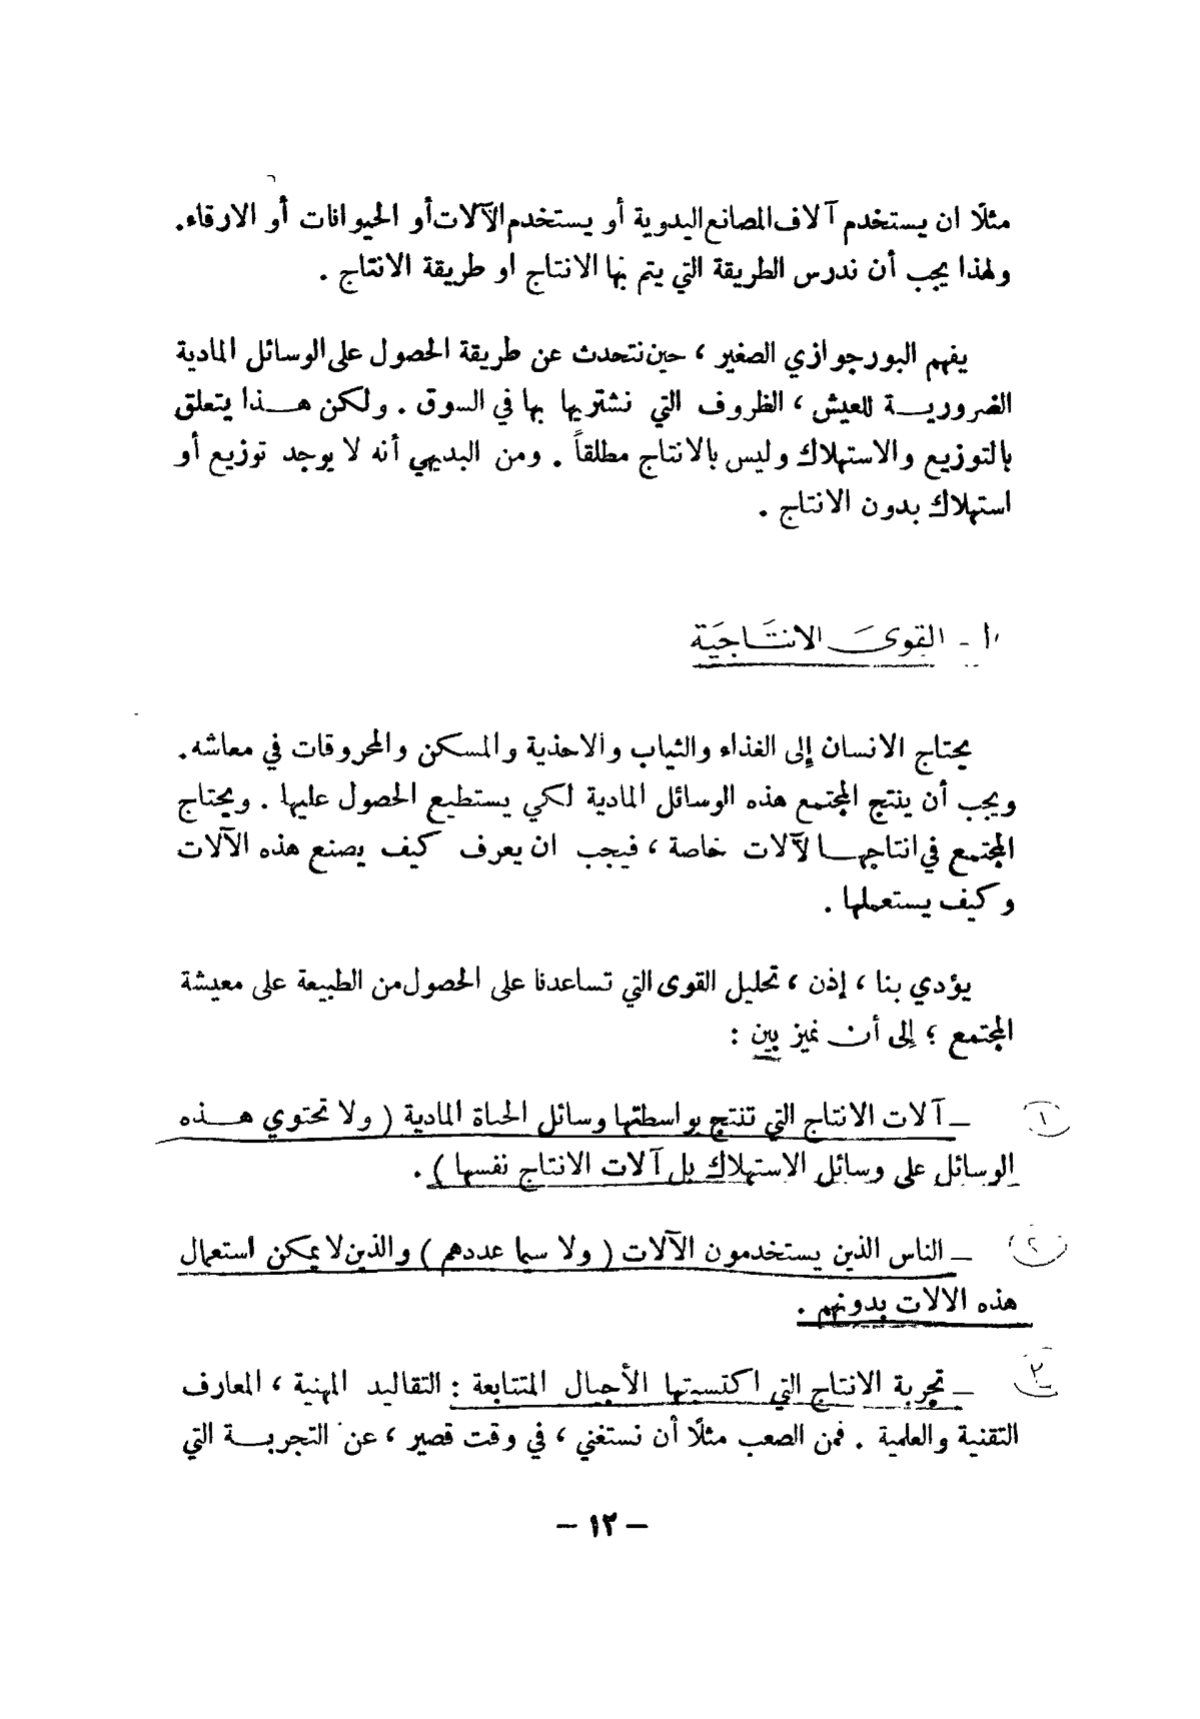 مثلًا ان يستخدم آلاف المصانع اليدوية أو يستخدم الآلات أو الحيوانات أو الارقاء.
ولهذا يجب أن ندرس الطريقة التي يتم بها الانتاج او طريقة الانتاج .
يفهم البورجوازي الصغير ، حين نتحدث عن طريقة الحصول على الوسائل المادية
الضرورية للعيش ، الظروف التي نشتريها بها في السوق . ولكن هذا يتعلق
بالتوزيع والاستهلاك وليس بالانتاج مطلقاً . ومن البديهي أنه لا يوجد توزيع أو
استهلاك بدون الانتاج .
١ - القوى الانتاجية
يحتاج الانسان إلى الغذاء والثياب والاحذية والمسكن والمحروقات في معاشه .
ويجب أن ينتج المجتمع هذه الوسائل المادية لكي يستطيع الحصول عليها . ويحتاج
المجتمع في انتاجها لآلات خاصة ، فيجب ان يعرف كيف يصنع هذه الآلات
وكيف يستعملها .
يؤدي بنا ، إذن ، تحليل القوى التي تساعدنا على الحصول من الطبيعة على معيشة
المجتمع ؛ إلى أن نميز بين :
١ – آلات الانتاج التي تنتج بواسطتها وسائل الحياة المادية ( ولا تحتوي هذه
الوسائل على وسائل الاستهلاك بل آلات الانتاج نفسها ) .
٢ – الناس الذين يستخدمون الآلات ( ولا سيما عددهم ) والذين لا يمكن استعمال
هذه الالات بدونهم .
٣ – تجربة الانتاج التي اكتسبتها الأجيال المتتابعة : التقاليد المهنية ، المعارف
التقنية والعلمية . فمن الصعب مثلًا أن نستغني ، في وقت قصير ، عن التجربة التي
– ١٢ –